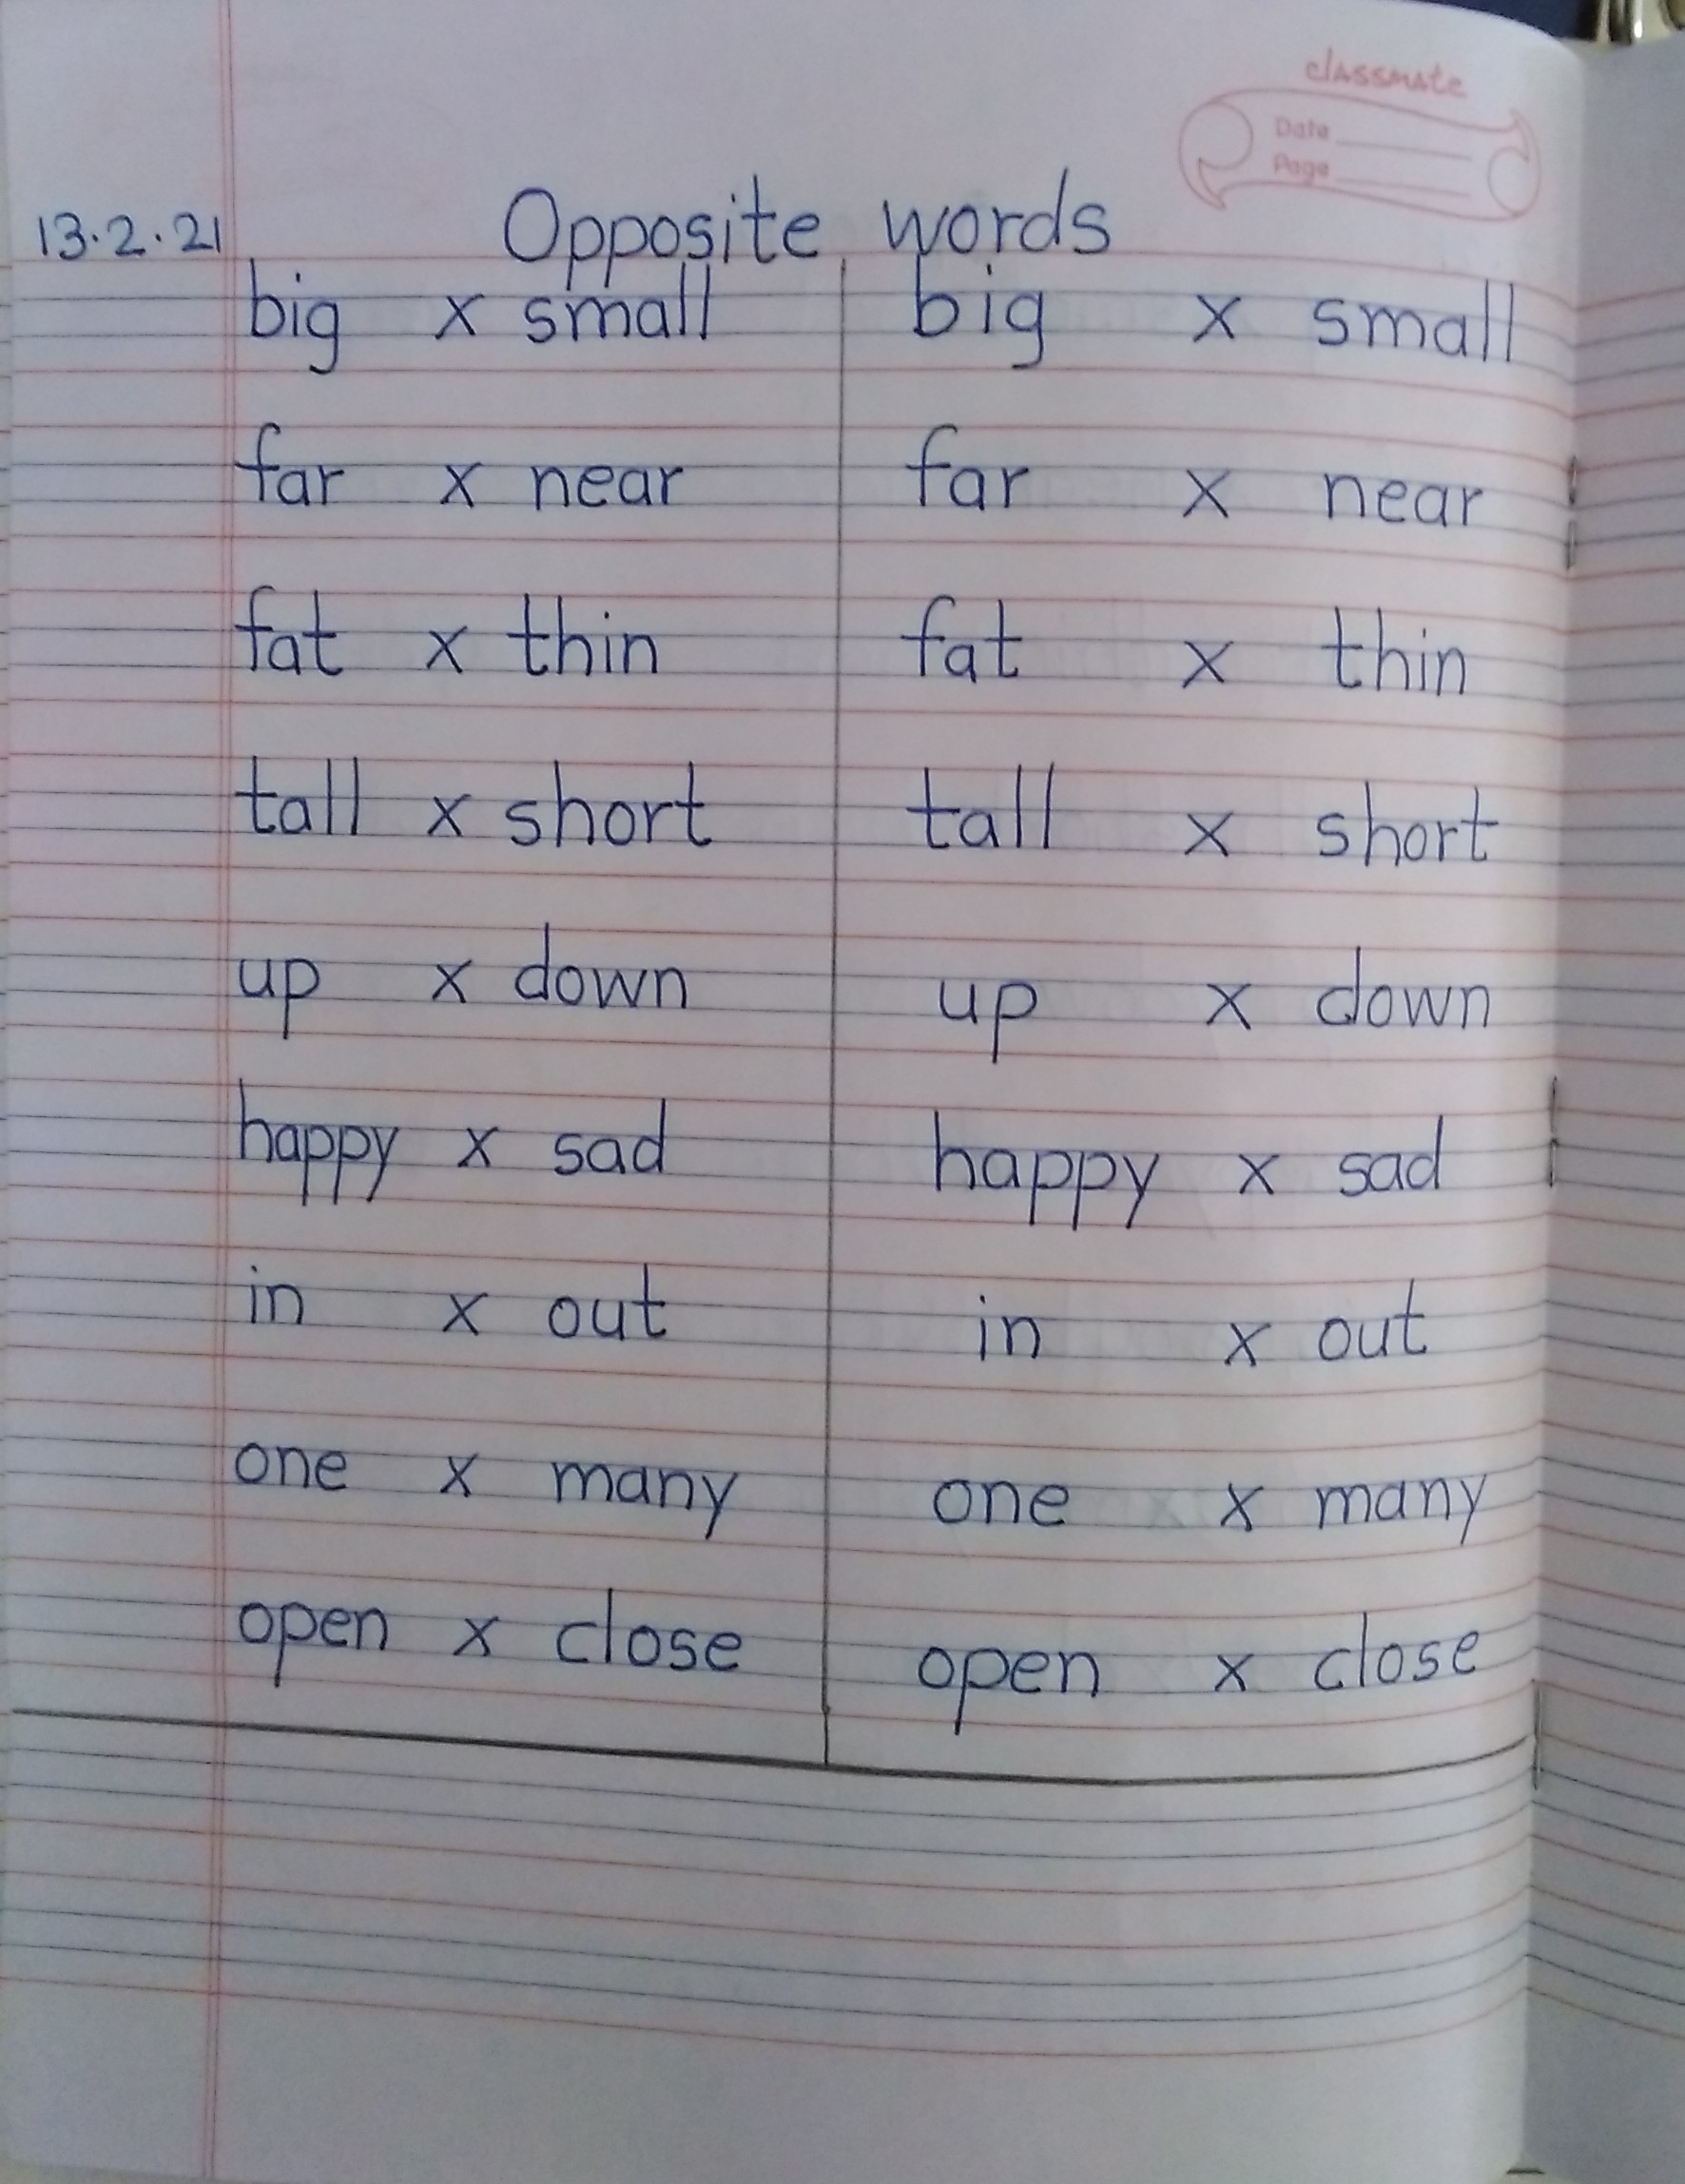 classmate
Date
Page
13.2.21 Opposite words
big x small big x small
far x near far x near
fat x thin fat x thin
tall x short tall x short
up x down up x down
happy x sad happy x sad
in x out in x out
one x many one x many
open x close open x close